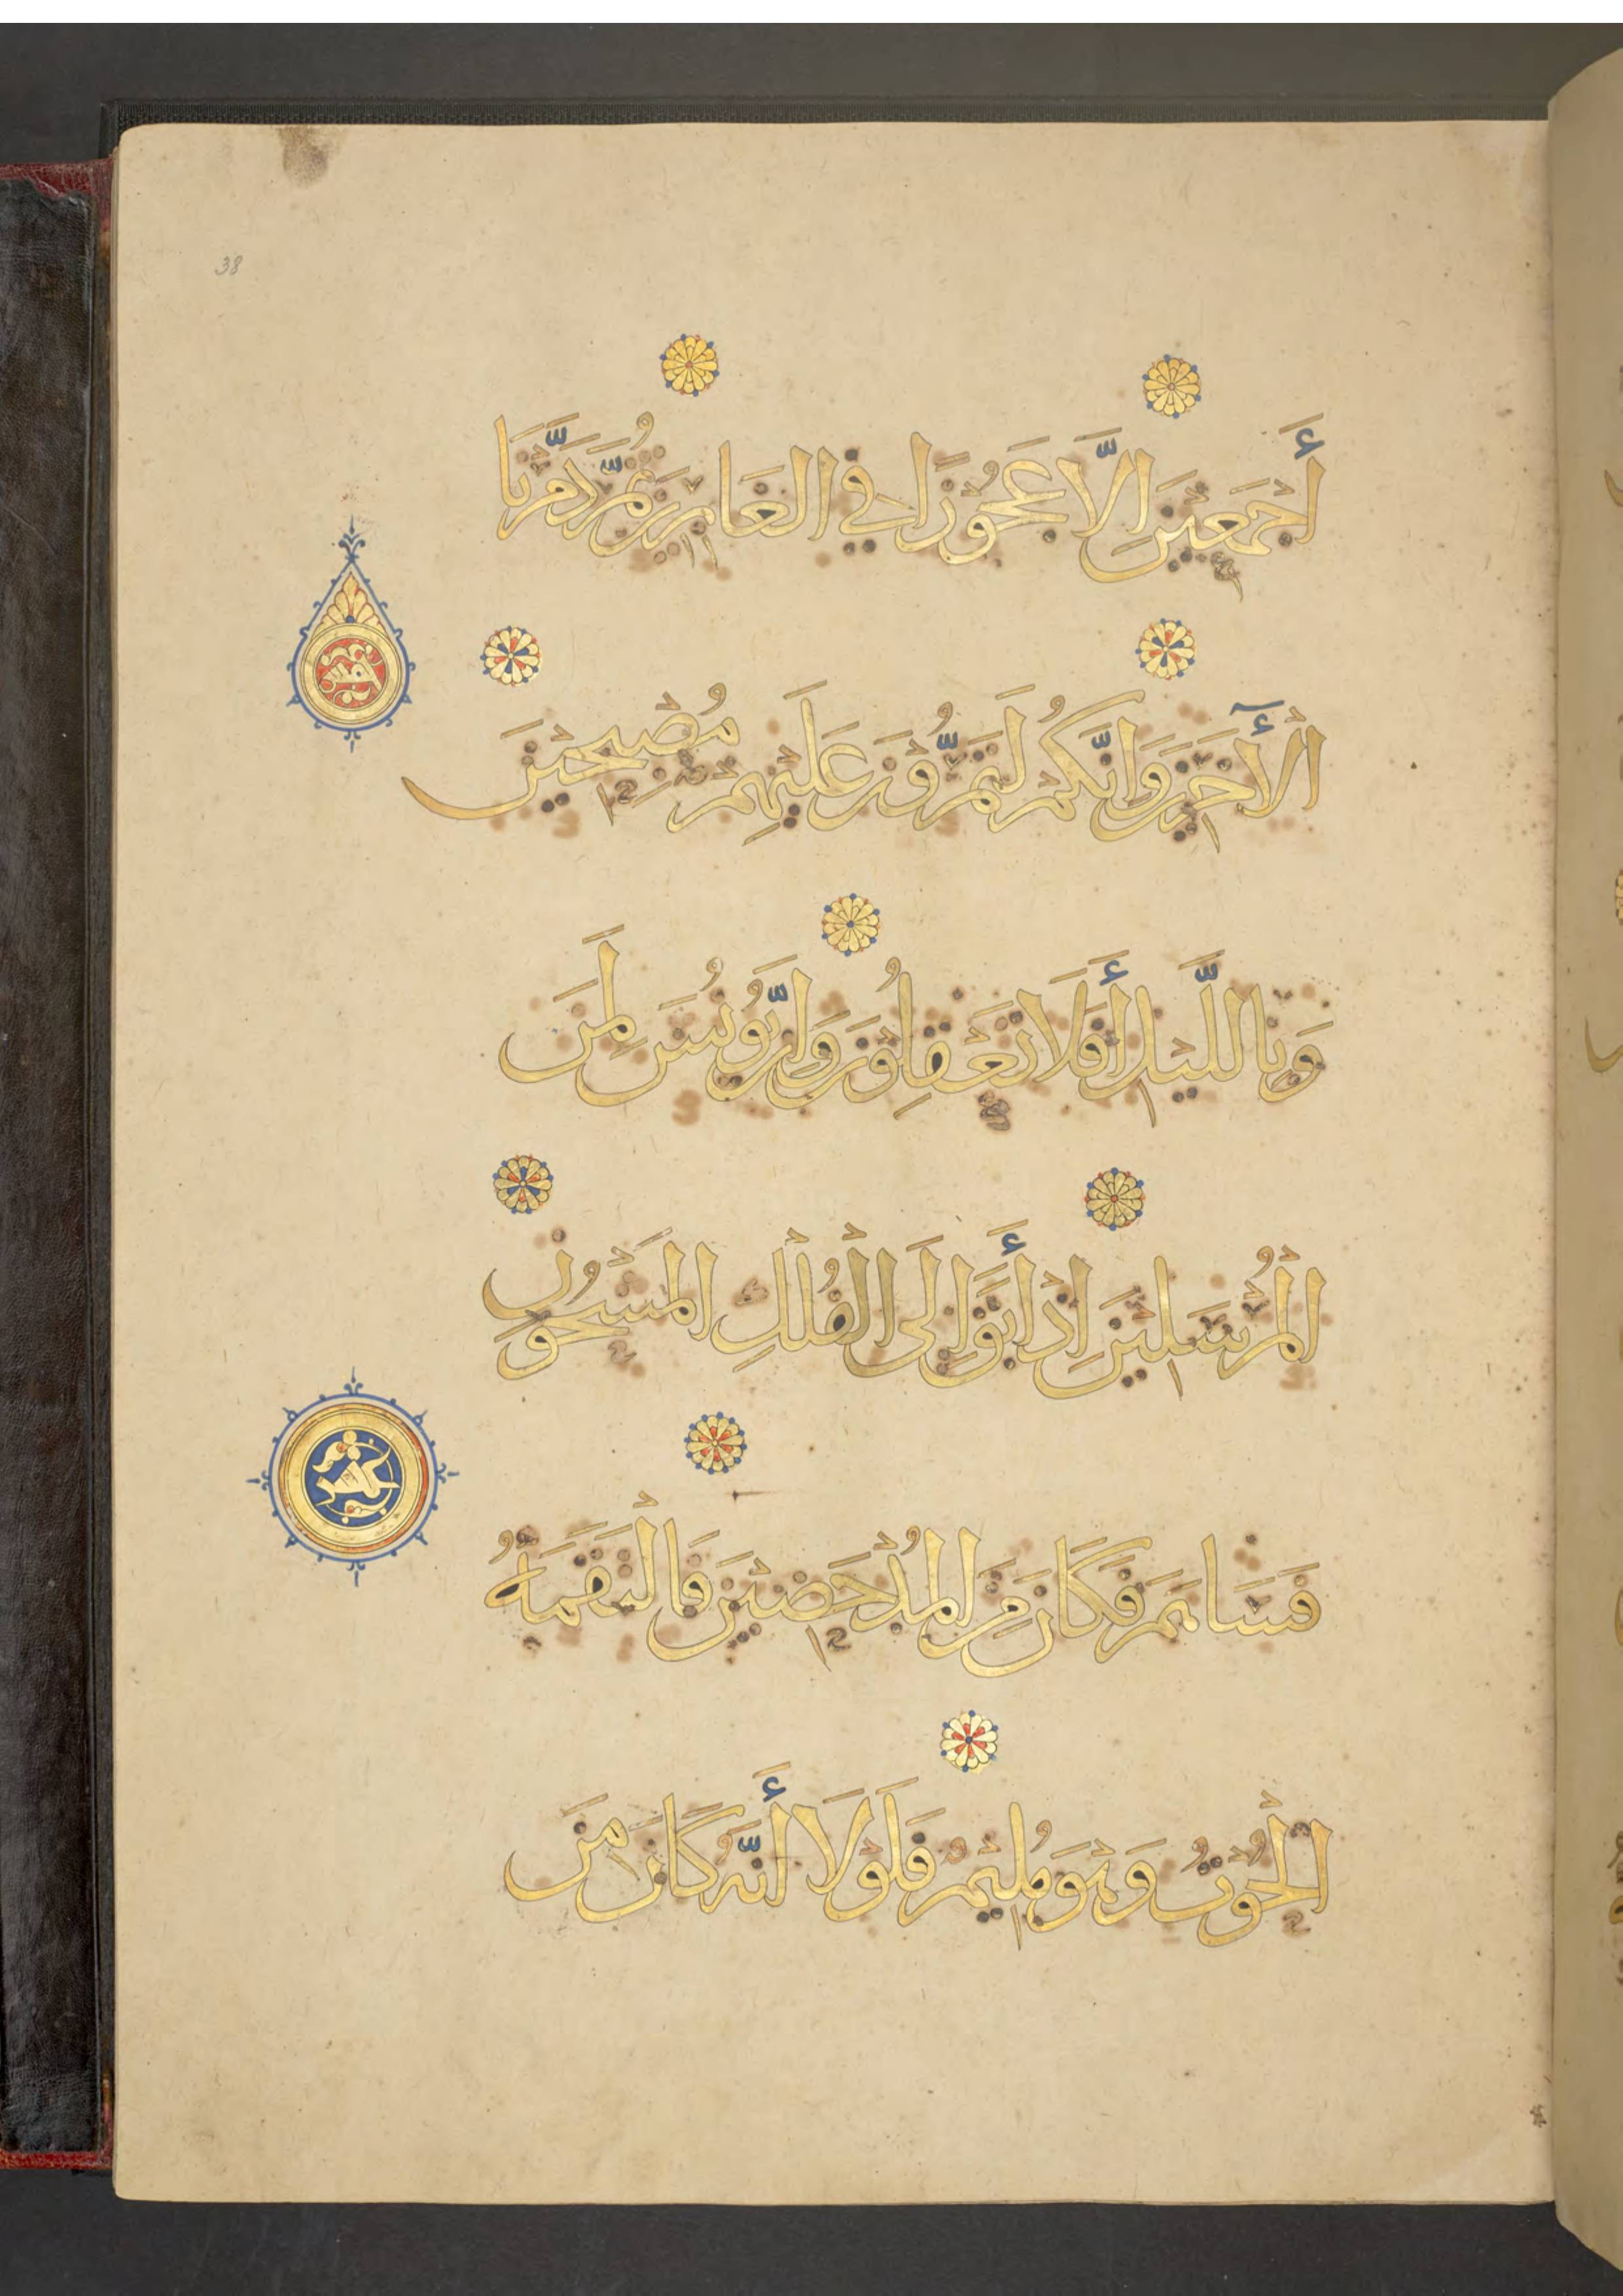 38
أَجْمَعِيْنَ اِلَّا عَجُوْزًا فِي الغَابِرِيْنَ ثُمَّ دَمَّرْنَا
الْأَٓخَرِيْنَ وَاِنَّكُمْ لَتَمُرُّوْنَ عَلَيْهِمْ مُصْبِحِيْنَ
وَبِاللَّيْلِ أَفَلَا تَعْقِلُوْنَ وَاِنَّ يُوْنُسَ لَمِنَ
الْمُرْسَلِيْنَ اِذْ أَبَقَ اِلَى الْفُلْكِ الْمَشْحُوْنِ
فَسَاهَمَ فَكَانَ مِنَ الْمُدْحَضِيْنَ فَالْتَقَمَهُ
الْحُوْتُ وَهُوَ مُلِيْمٌ فَلَوْلَا أَنَّهُ كَانَ مِنَ